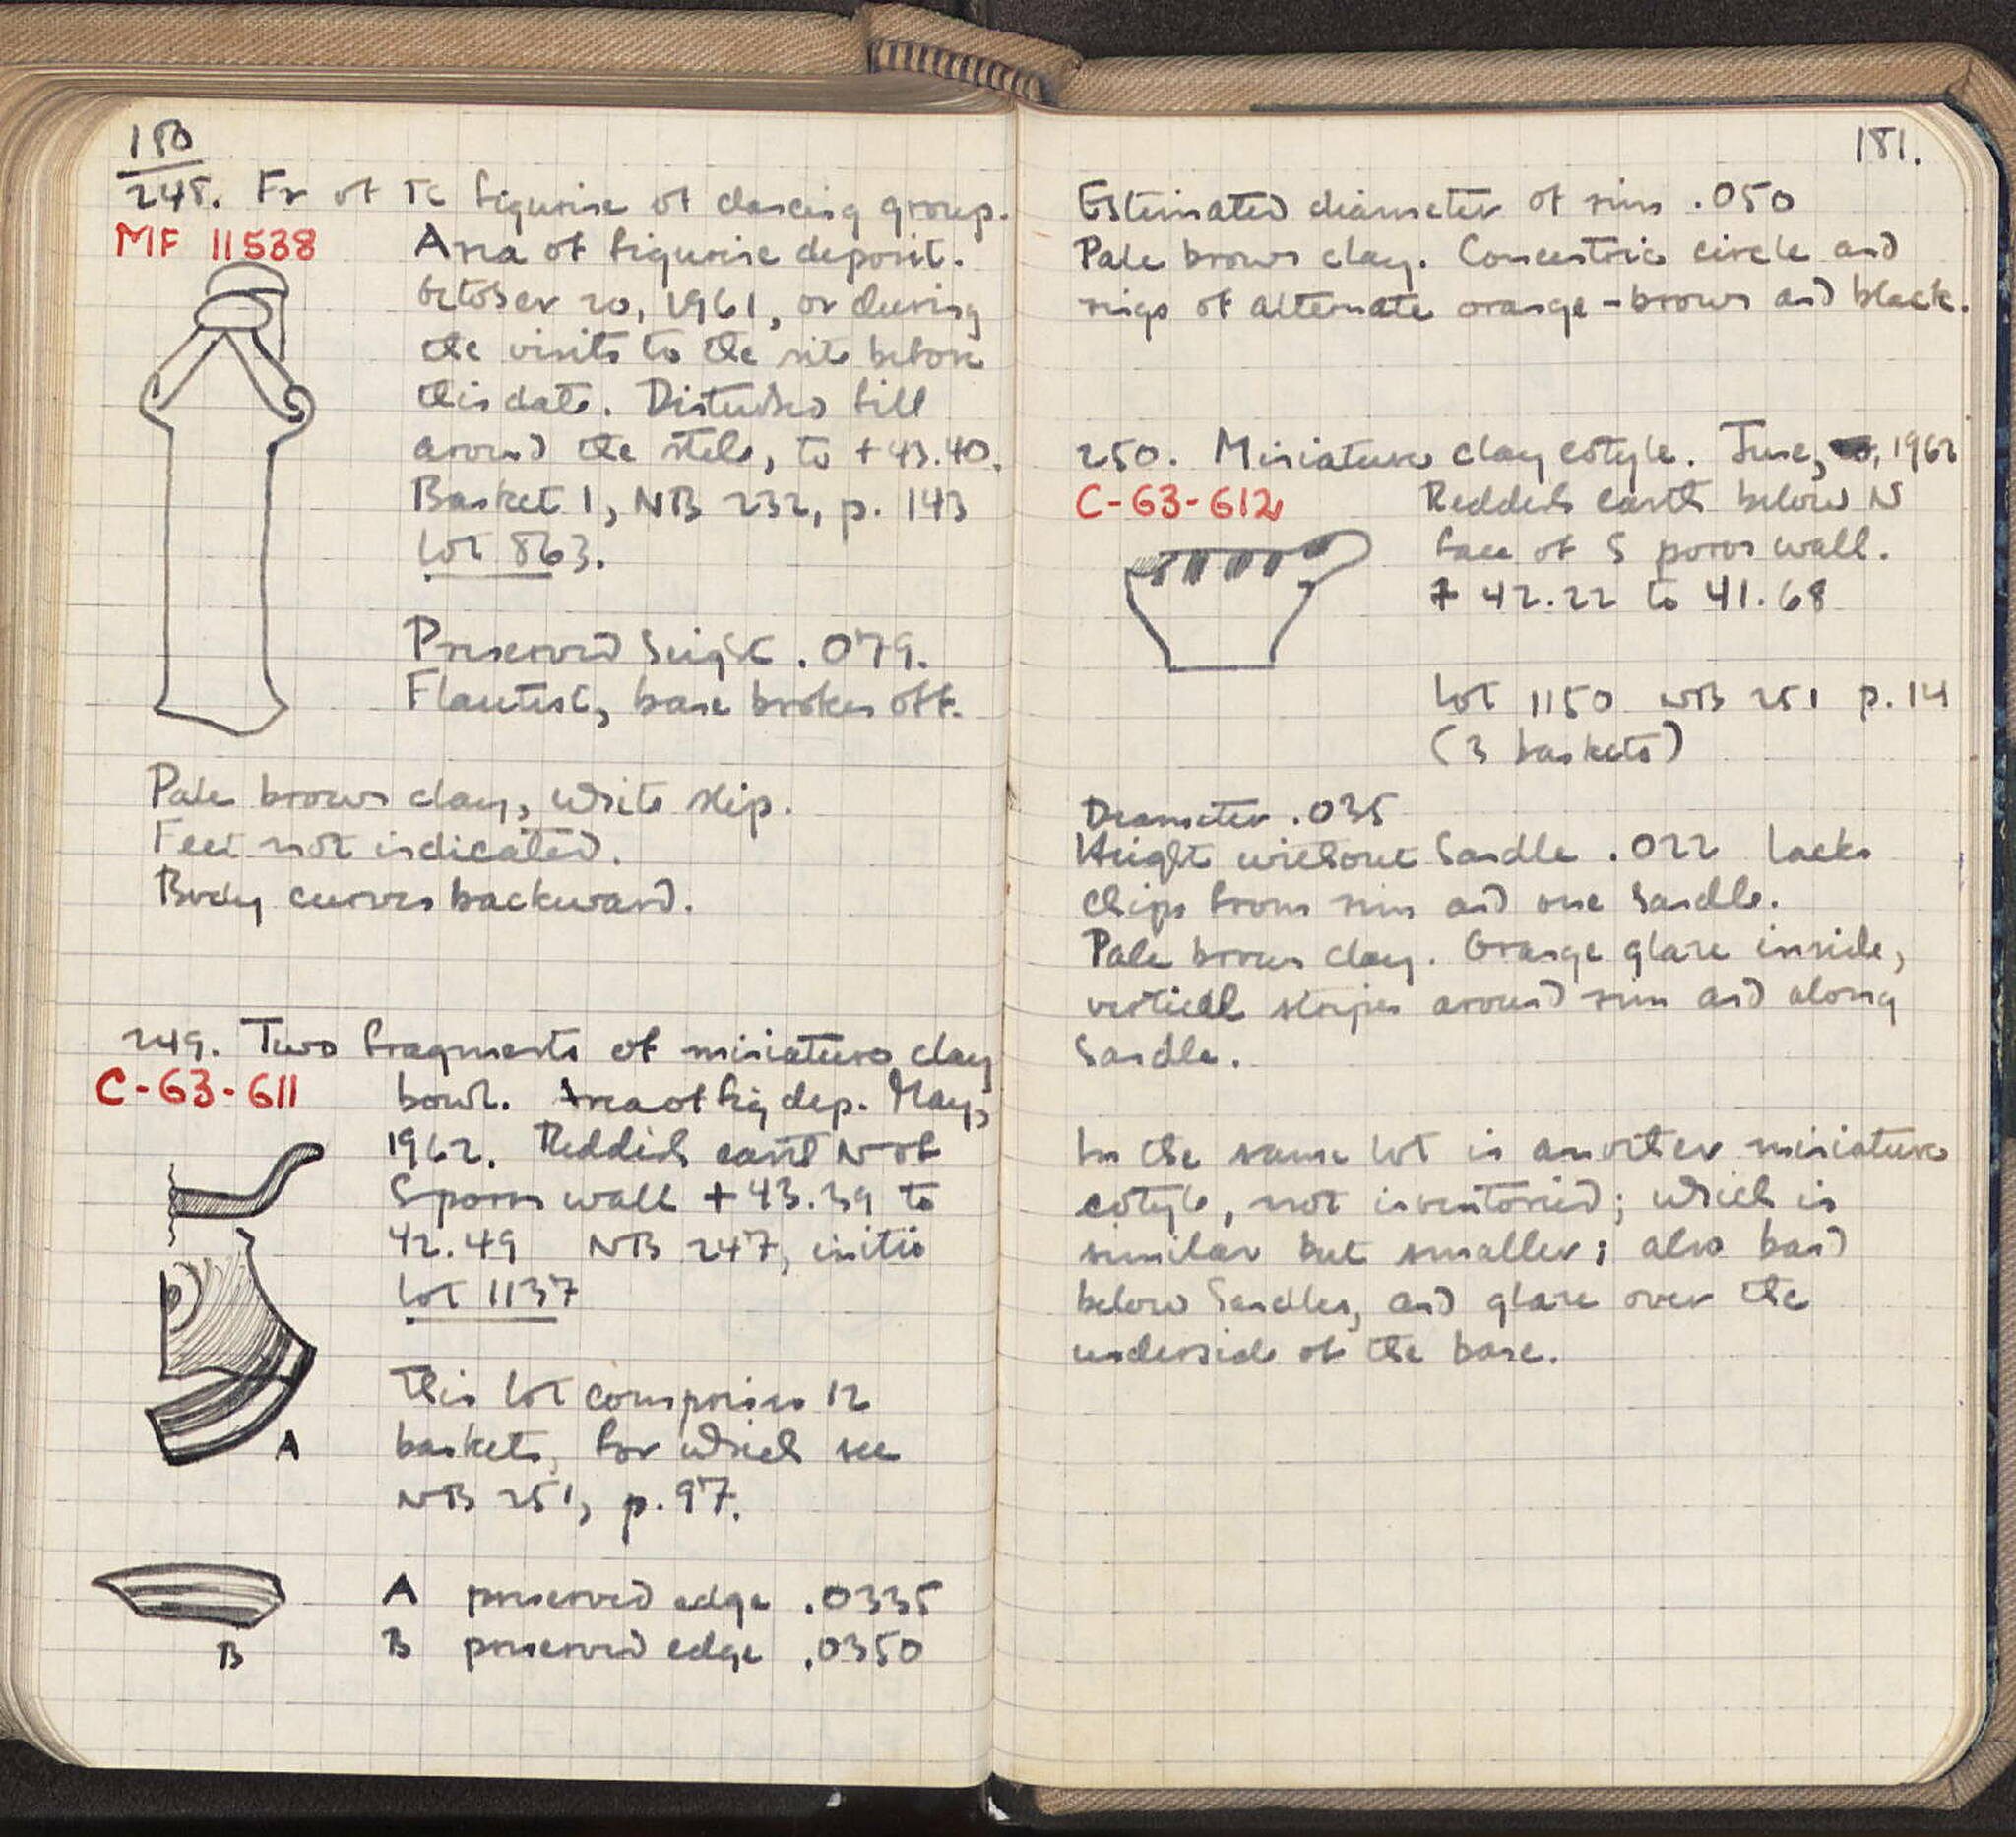 180
248. Fr of TC figurine of dancing group.
MF 11538
Area of figurine deposit.
October 20, 1961, or during
the visits to the site before
this date. Disturbed fill
around the stele, to +43.40.
Basket 1, NB 232, p. 143
Lot 863.
Preserved height .079.
Flautist, base broken off.
Pale brown clay, white slip.
Feet not indicated.
Body curves backward.
249. Two fragments of miniature clay
C-63-611
bowl. Area of fig dep. May,
1962. Reddish earth N of
S poros wall +43.39 to
42.49 NB 247, initio
Lot 1137
This lot comprises 12
baskets, for which see
NB 251, p. 97.
A
B
A preserved edge .0335
B preserved edge .0350
181.
Estimated diameter of rim .050
Pale brown clay. Concentric circle and
rings of alternate orange-brown and black.
250. Miniature clay cotyle. June, 1962
C-63-612
Reddish earth below N
face of S poros wall.
+ 42.22 to 41.68
Lot 1150 NB 251 p. 14
(3 baskets)
Diameter .035
Height without handle .022 Lacks
chips from rim and one handle.
Pale brown clay. Orange glaze inside,
vertical stripes around rim and along
handle.
In the same lot is another miniature
cotyle, not inventoried; which is
similar but smaller; also band
below handles, and glaze over the
underside of the base.